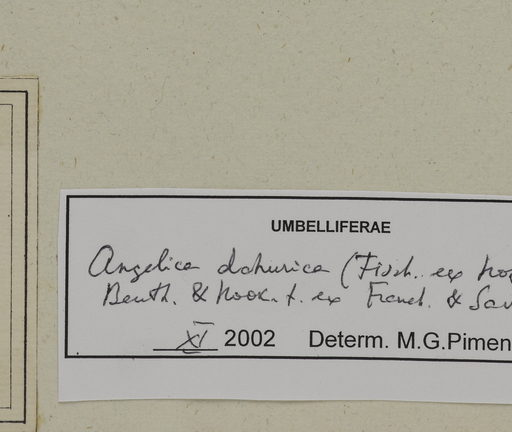 UMBELLIFERAE
Angelica dahurica (Fisch. ex Hof
Benth. & Hook. f. ex Franch. & Sav
XI 2002 Determ. M.G.Pimen